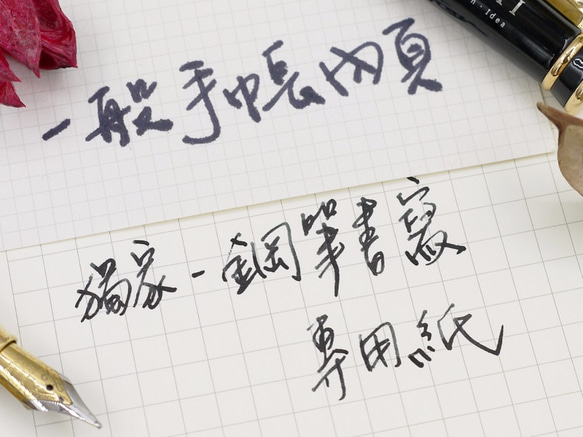 一般手帳內頁
獨家-鋼筆書寫
專用紙